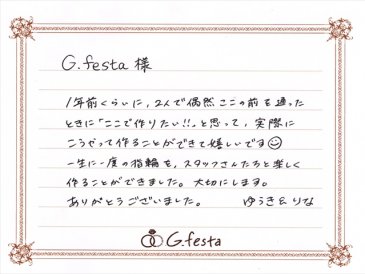 G.festa 様
1年前くらいに、2人で偶然ここの前を通った
ときに「ここで作りたい!!」と思って、実際に
こうやって作ることができて嬉しいです☺
一生に一度の指輪を、スタッフさんたちと楽しく
作ることができました。大切にします。
ありがとうございました。 ゆうき&りな
G.festa